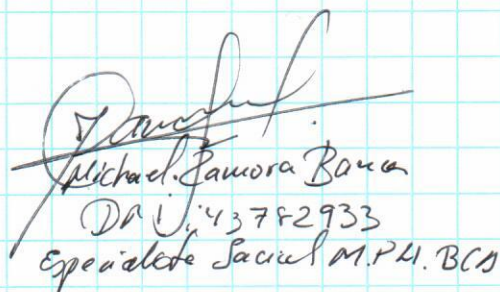 Michael. Zamora Banca
DNI: 43782933
Especialista Social M.P.H. BCA